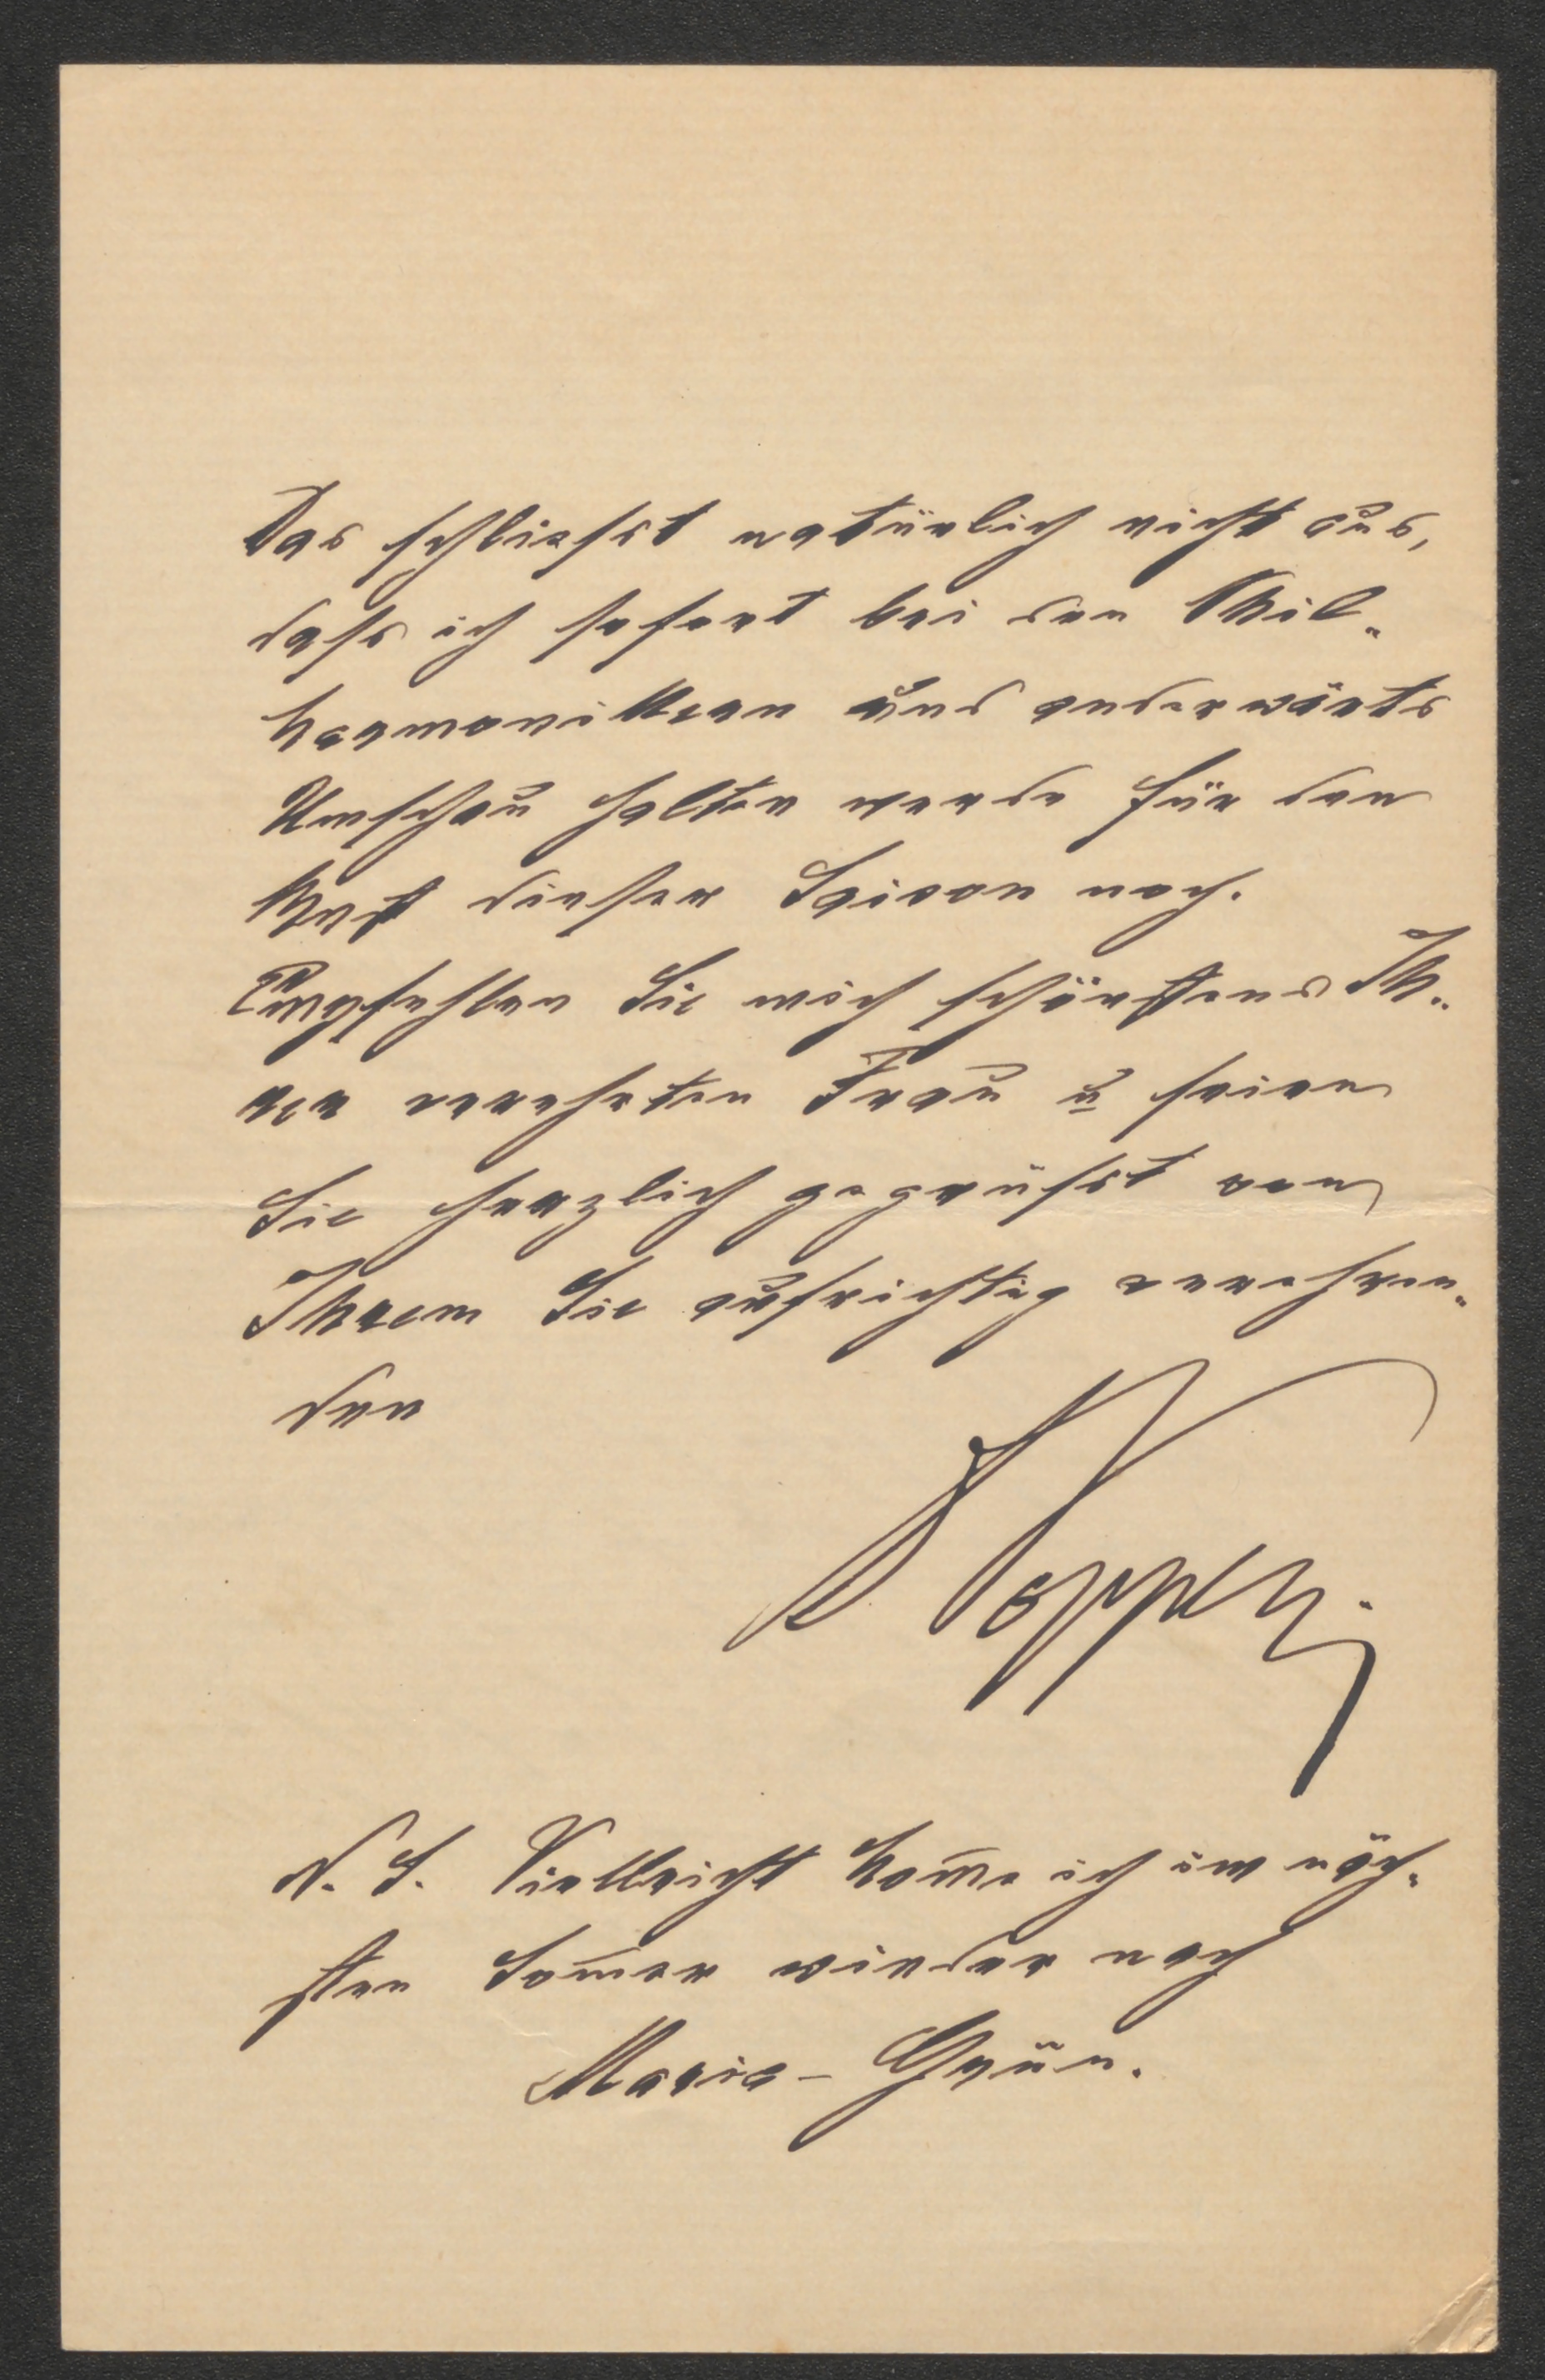 Das schliesst natürlich nicht aus,
dass ich sofort bei den Phil-
harmonikern und anderwärts
Umschau halten werde für den
Rest dieser Saison noch.
Empfehlen Sie mich schönstens Ih-
rer verehrten Frau u seien
Sie herzlich gegrüsst von
Ihrem Sie aufrichtig verehren-
den
N. S. Vielleicht kom̅e ich im näch-
sten Som̅er wieder nach
Maria-Grün.